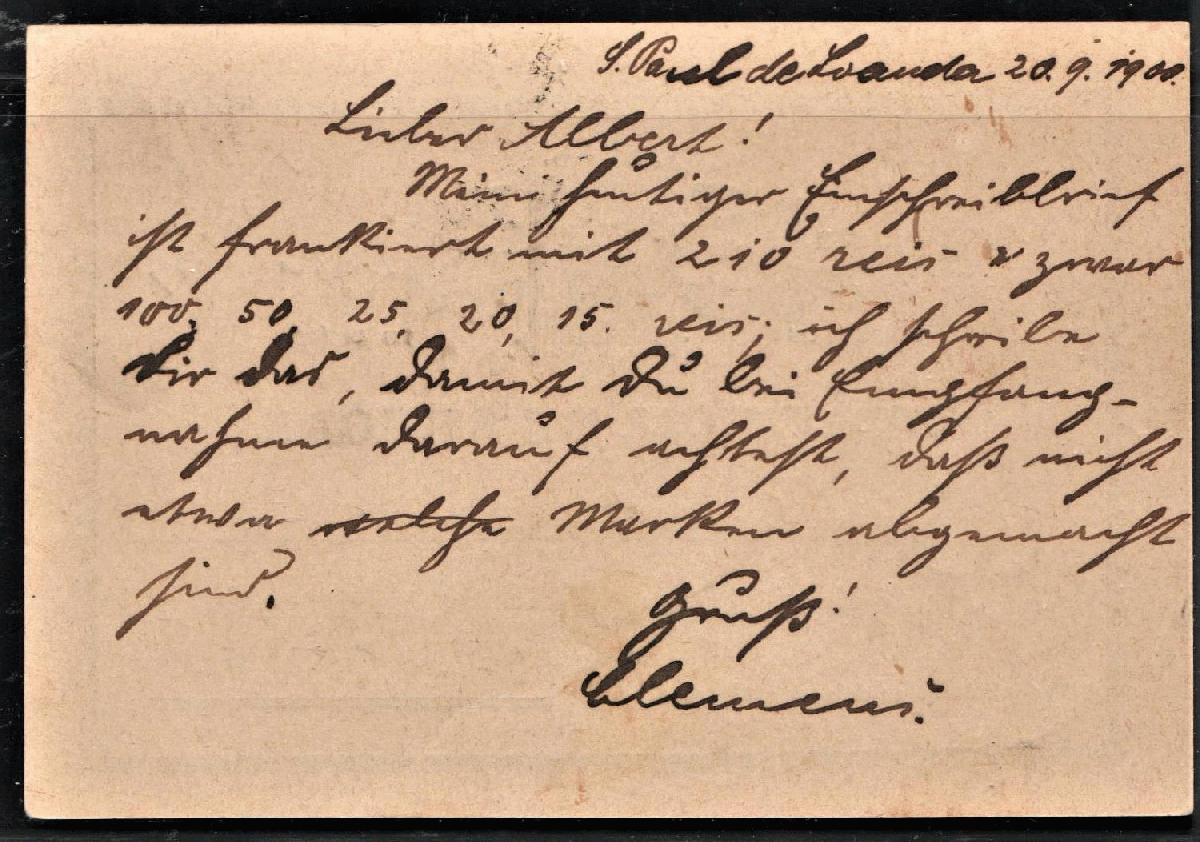 S. Paul de Loanda 20.9.1900.
Lieber Albert!
Mein heutiger Einschreibbrief
ist frankiert mit 210 reis u zwar
100, 50, 25, 20, 15. reis; ich schreibe
Dir das, damit Du bei Empfang-
nahme darauf achtest, daß nicht
etwa welche Marken abgemacht
sind.
Gruß!
Clemens.